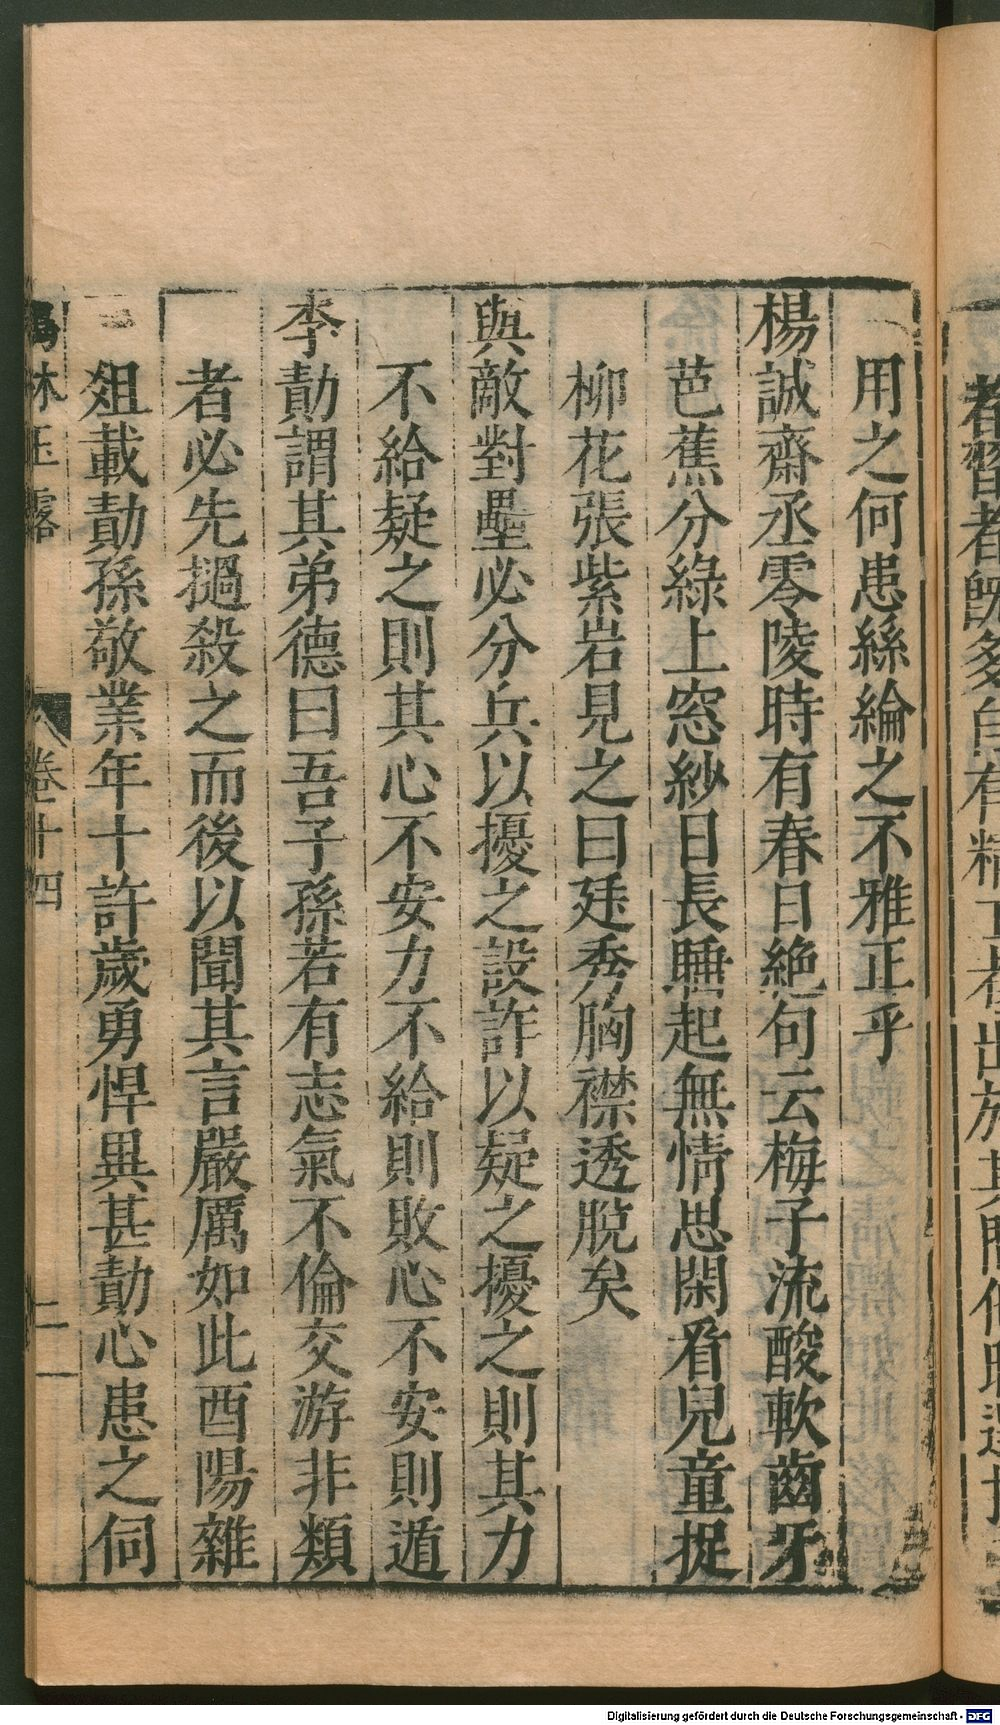 用之何患絲綸之不雅正乎
楊誠齋丞零陵時有春日絶句云梅子流酸軟齒牙
芭蕉分綠上窓紗日長睡起無情思閑看兒童捉
柳花張紫岩見之曰廷秀胸襟透脫矣
與敵對壘必分兵以擾之設詐以疑之擾之則其力
不給疑之則其心不安力不給則敗心不安則遁
李勣謂其弟德曰吾子孫若有志氣不倫交游非類
者必先撾殺之而後以聞其言嚴厲如此酉陽雜
爼載勣孫敬業年十許歲勇悍異甚勣心患之伺
林玉露
卷十四
二
Digitalisierung gefördert durch die Deutsche Forschungsgemeinschaft - DFG